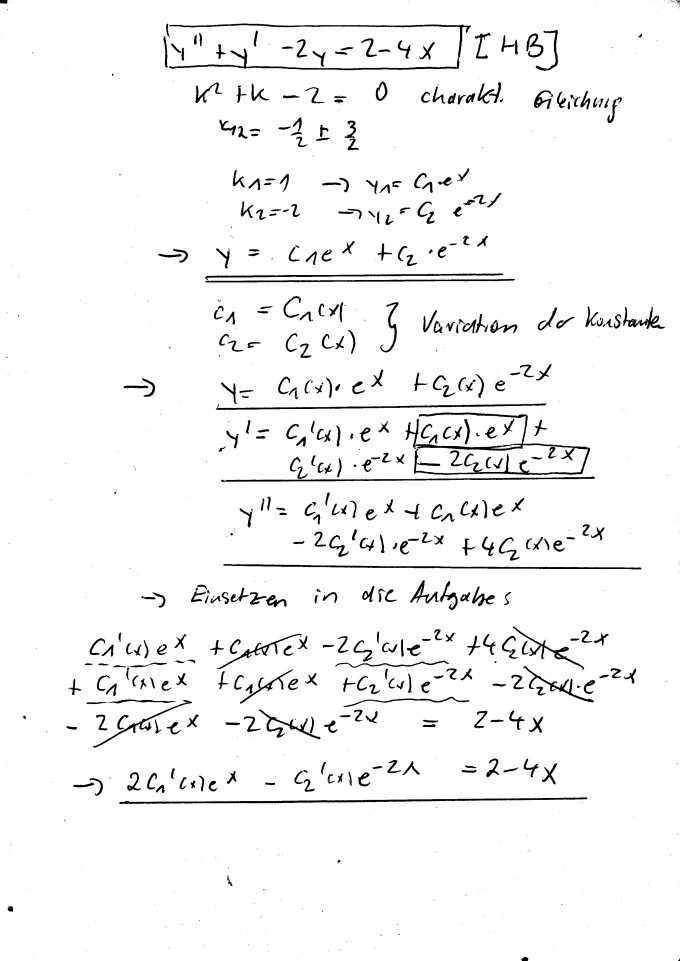 y'' + y' - 2y = 2 - 4x [HB]
k² + k - 2 = 0 charakt. Gleichung
k12 = -1/2 ± 3/2
k1 = 1 → y1 = C1·e^x
k2 = -2 → y2 = C2 e^-2x
→ y = C1e^x + C2·e^-2x
C1 = C1(x)
C2 = C2(x) } Variation der Konstanten
→ y = C1(x)·e^x + C2(x) e^-2x
y' = C1'(x)·e^x + C1(x)·e^x +
C2'(x)·e^-2x - 2C2(x) e^-2x
y'' = C1'(x) e^x + C1(x) e^x
- 2C2'(x)·e^-2x + 4C2(x)e^-2x
→ Einsetzen in die Aufgabe:
C1'(x) e^x + C1(x)e^x - 2C2'(x)e^-2x + 4C2(x)e^-2x
+ C1'(x)e^x + C1(x)e^x + C2'(x) e^-2x - 2C2(x)·e^-2x
- 2C1(x)e^x - 2C2(x) e^-2x = 2 - 4x
→ 2C1'(x)e^x - C2'(x)e^-2x = 2 - 4x